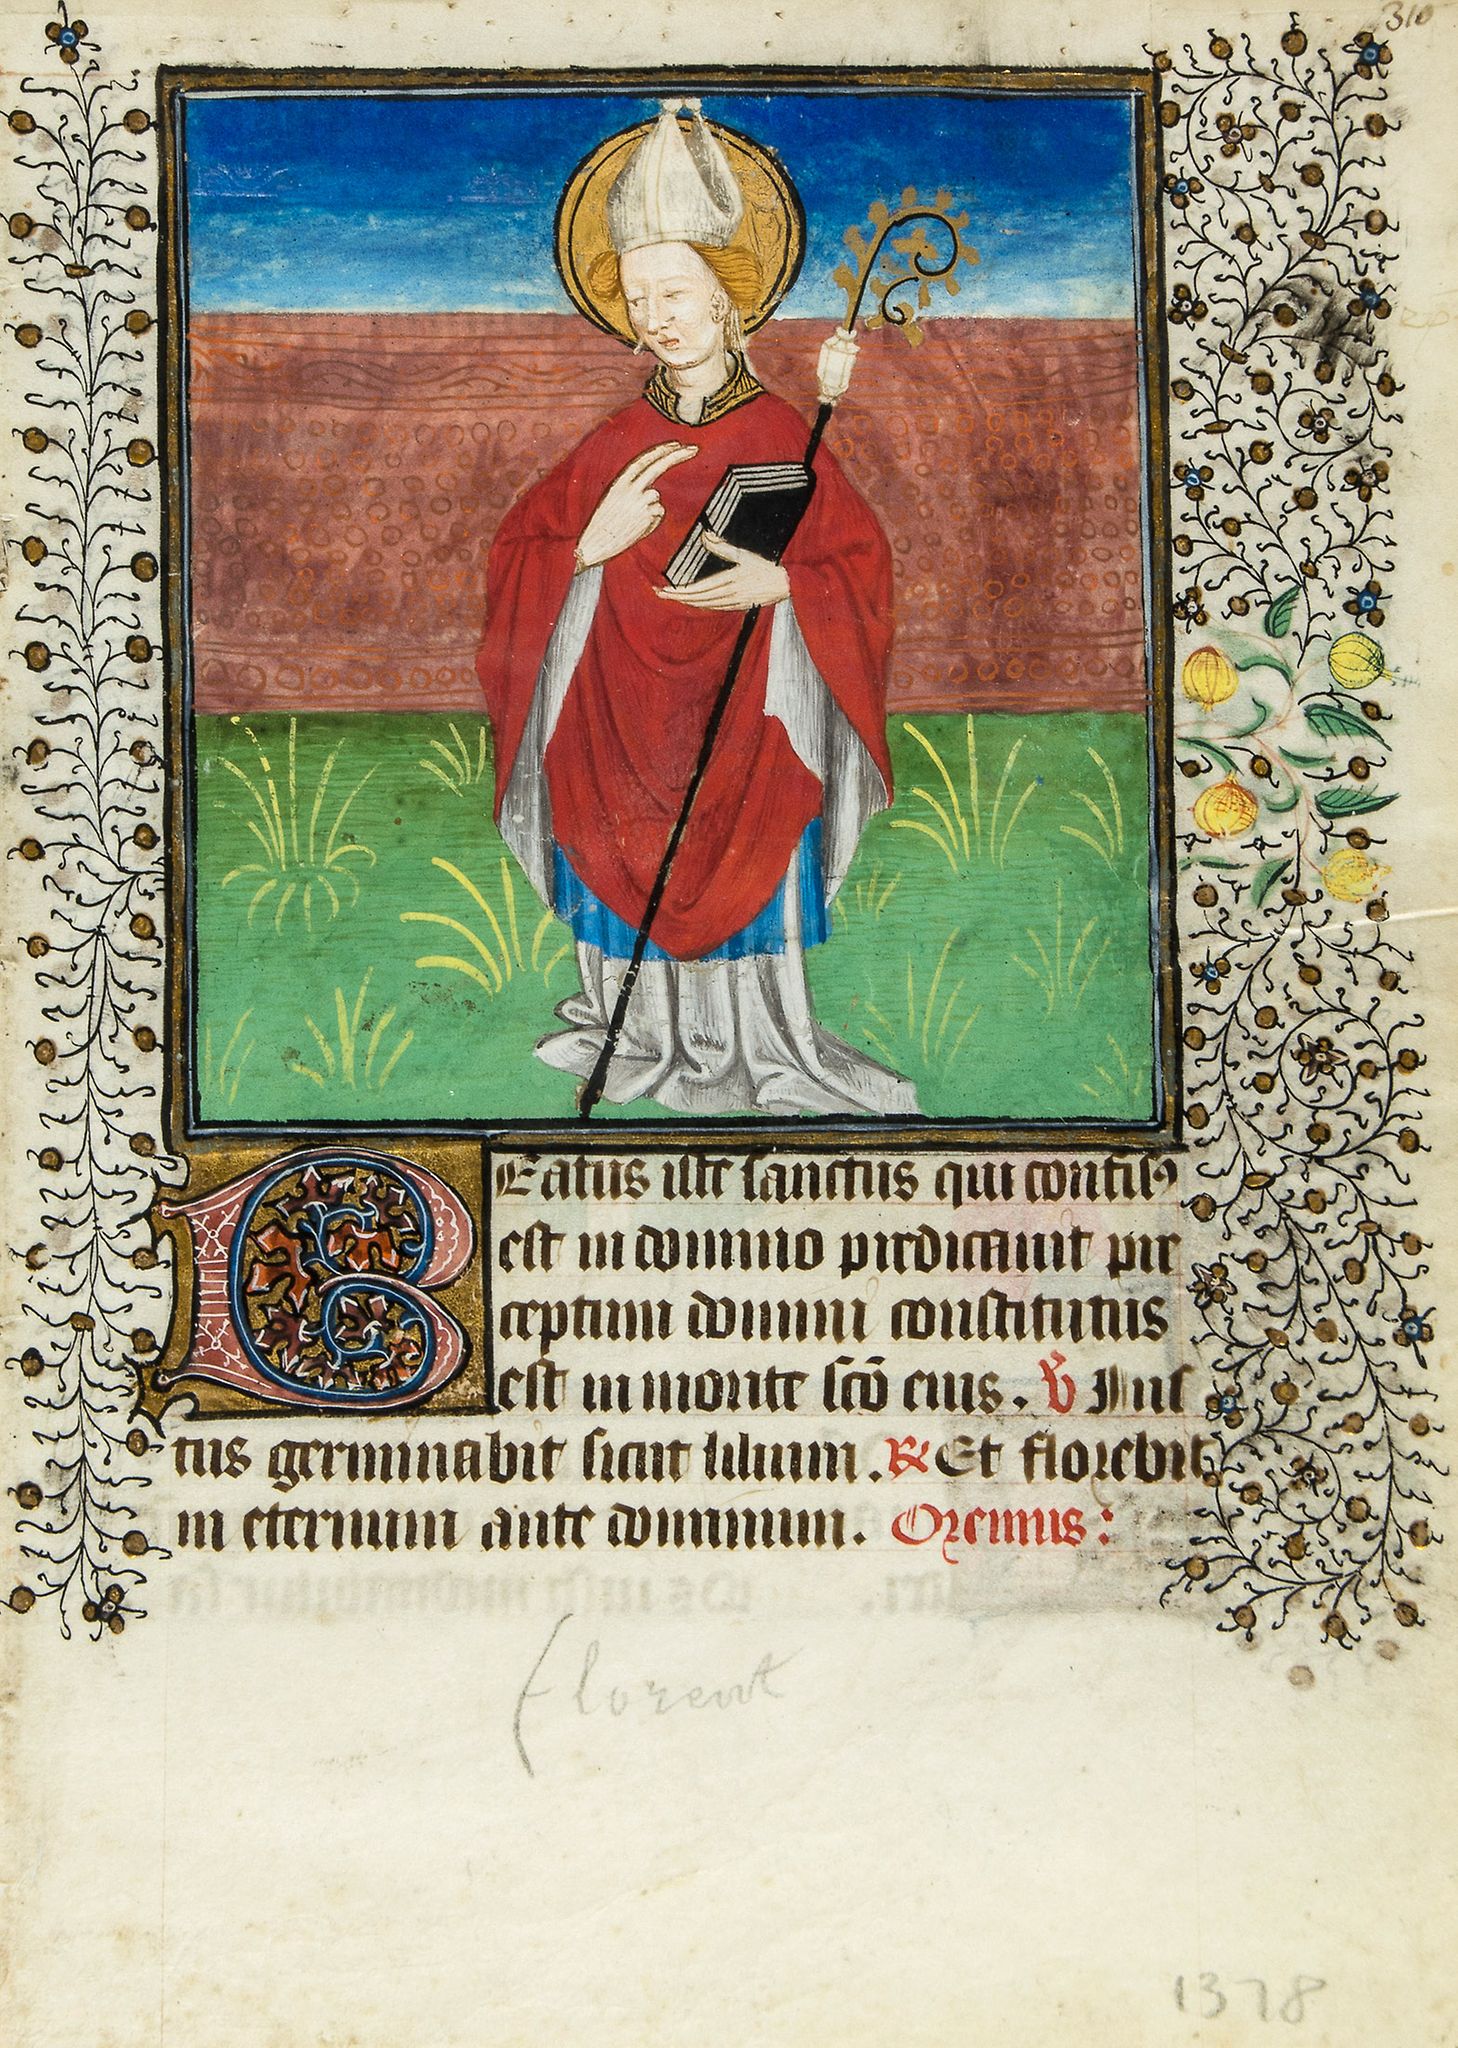 310
Eatus iste sanctus qui confisꝰ
est in domino predicauit pre
ceptum domini constitutus
est in monte sc̄o eius. ℣ Jus
tus germinabit sicut lilium. ℟ Et florebit
in eternum ante dominum. Oremus:
florent
1378